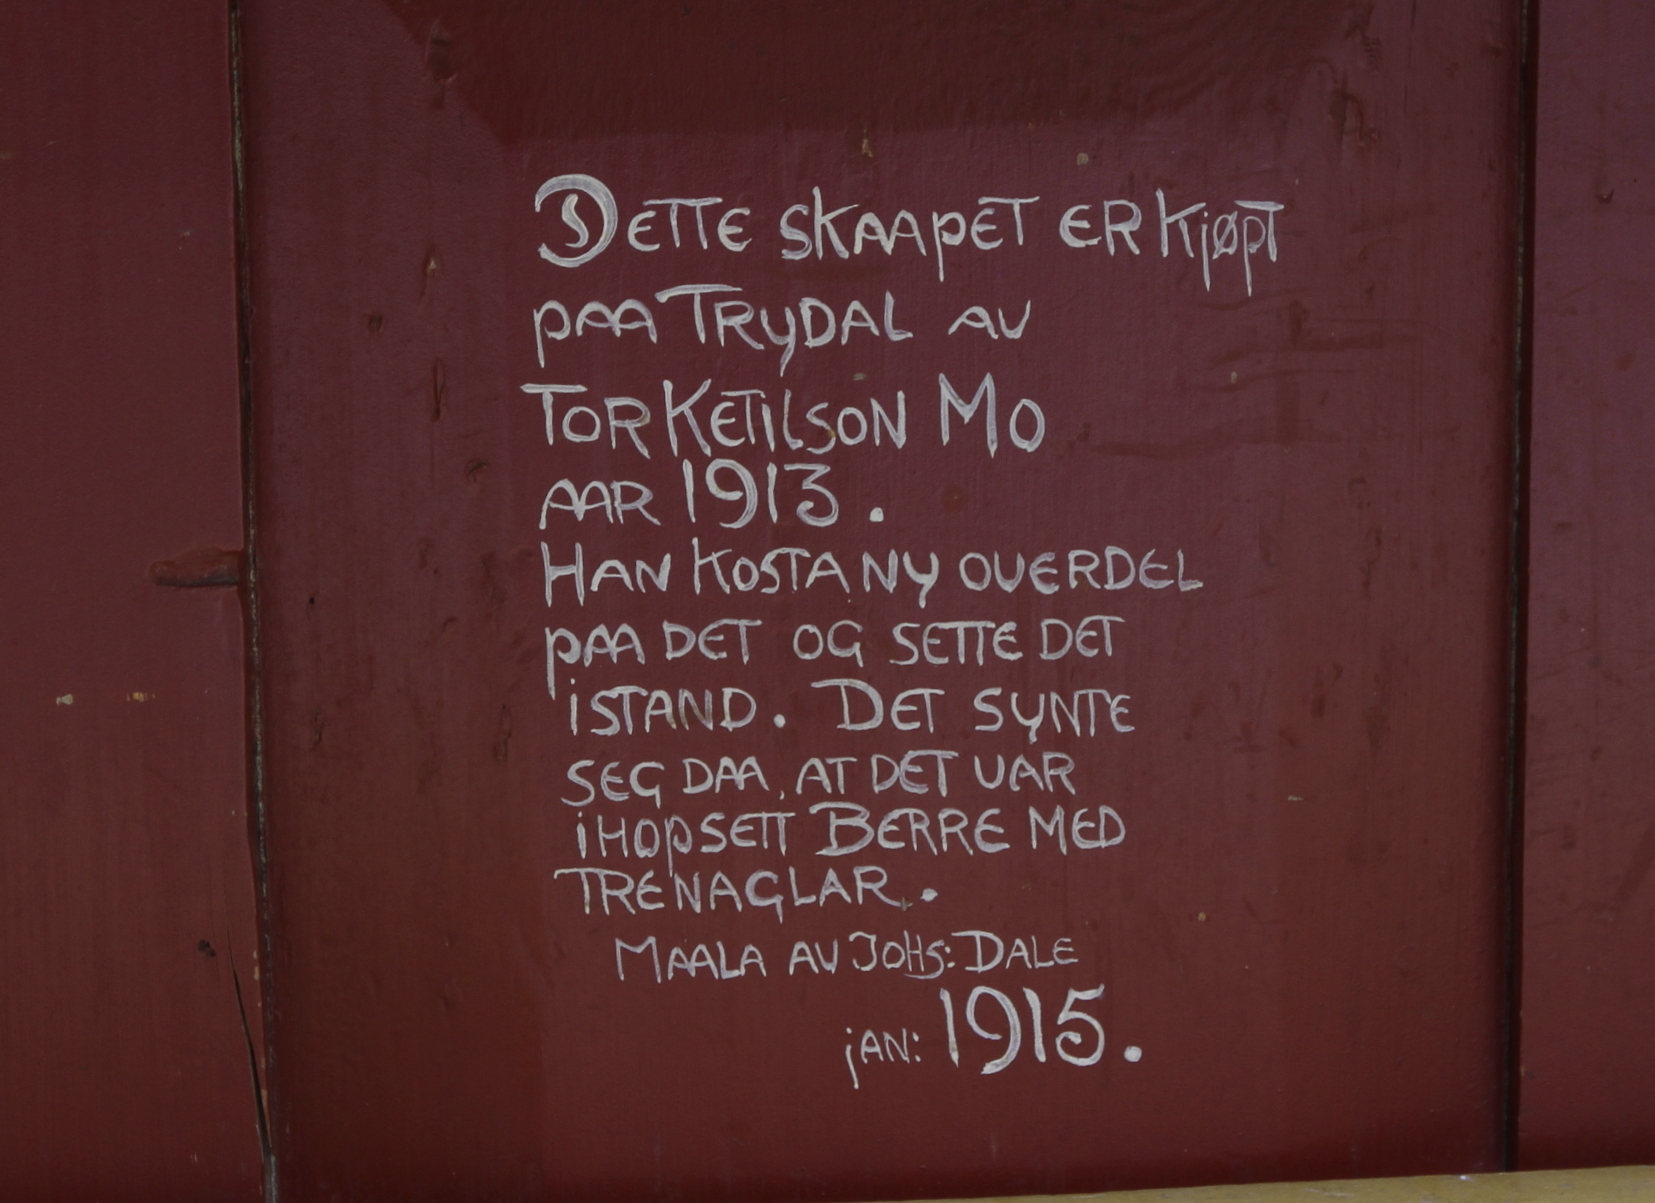 Dette skaapet er kjøpt
paa Trydal av
Tor Ketilson Mo
aar 1913.
Han kosta ny overdel
paa det og sette det
istand. Det synte
seg daa, at det var
ihopsett berre med
trenaglar.
Maala av Johs: Dale
jan: 1915.